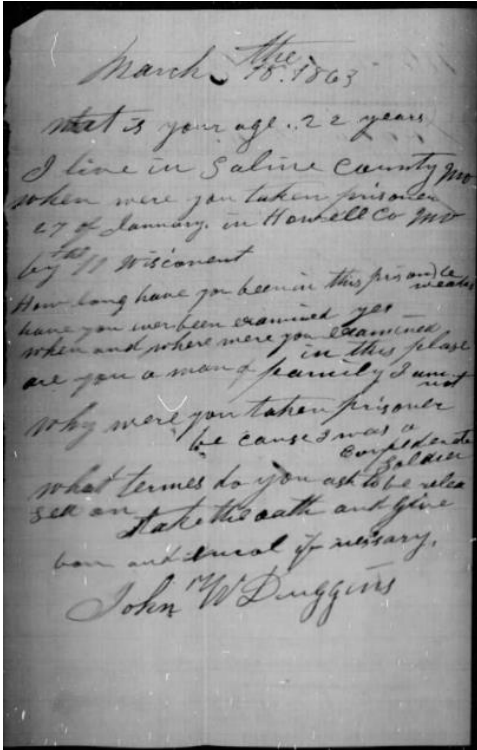 March the 18. 1863
what is your age. 22 years
I live in Saline County Mo
when were you taken prisoner
27 of January. in Howell Co Mo
by the 11 Wisconent
How long have you been in this prison
have you ever been examined yes
when and where were you examined
in this plase
are you a man of family I am not
why were you taken prisoner
be cause I was a
Confederate
Soldier
what termes do you ask to be relea
sed on
take the oath and give
and if
John W Duggins